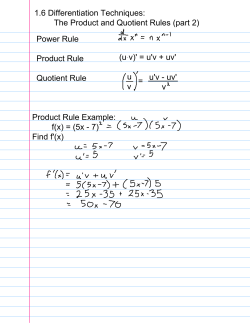 1.6 Differentiation Techniques:
The Product and Quotient Rules (part 2)
Power Rule d/dx xⁿ = n xⁿ⁻¹
Product Rule (u v)' = u'v + uv'
Quotient Rule (u/v)' = u'v - uv' / v²
Product Rule Example: u v
f(x) = (5x - 7)² = (5x-7)(5x-7)
Find f'(x)
u = 5x-7 v = 5x-7
u' = 5 v' = 5
f'(x) = u'v + u v'
= 5(5x-7) + (5x-7) 5
= 25x - 35 + 25x - 35
= 50x - 70